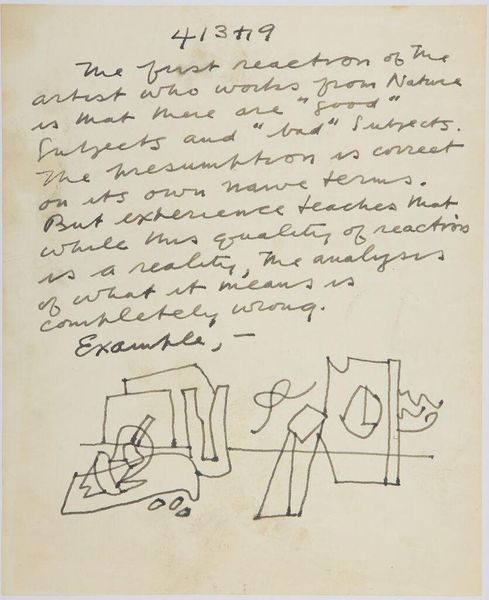 413+9
The first reaction of the
artist who works from Nature
is that there are "good"
Subjects and "bad" Subjects.
The presumption is correct
on its own naive terms.
But experience teaches that
while this quality of reaction
is a reality, the analysis
of what it means is
completely wrong.
Example, —